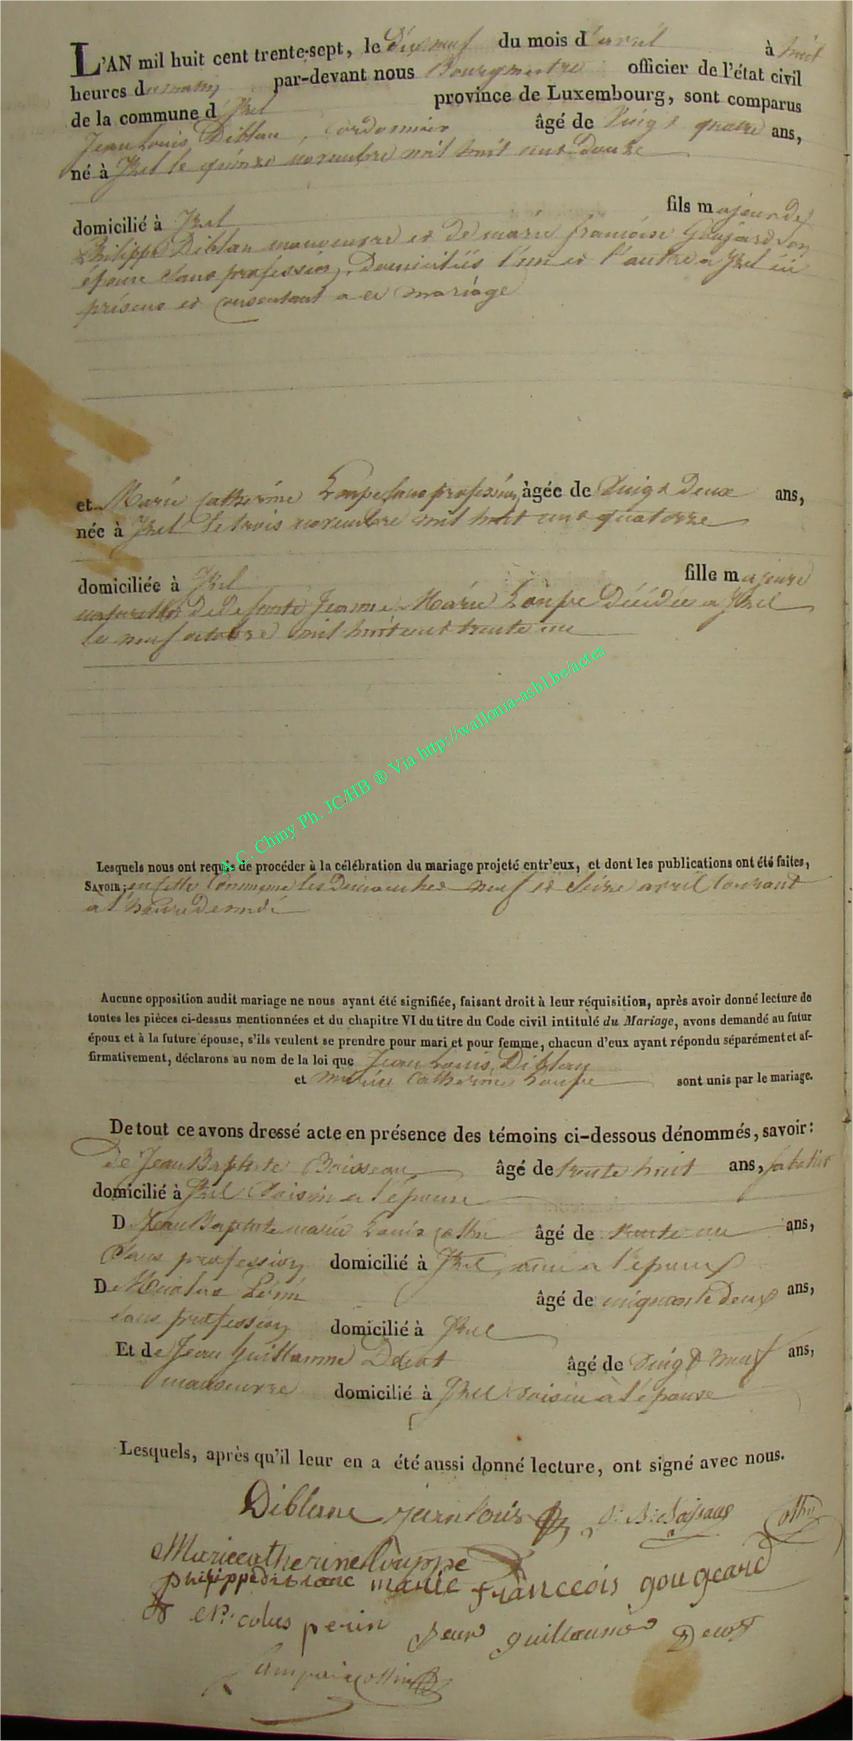 L'AN mil huit cent trente-sept, le dix neuf du mois d'avril à huit
heures du matin par-devant nous Bourgmestre officier de l'état civil
de la commune d'Izel province de Luxembourg, sont comparus
Jean Louis Diblan, cordonnier âgé de vingt quatre ans,
né à Izel le quinze novembre mil huit cent douze
domicilié à Izel fils majeur de
Philippe Diblan manoeuvre et de marie francoise Goujard son
épouse sans profession, domiciliés l'un et l'autre a Izel ici
présens et consentant a ce mariage
et Marie Catherine Louppe sans profession, âgée de vingt deux ans,
née à Izel le trois novembre mil huit cent quatorze
domiciliée à Izel fille majeure
naturelle de defunte Jeanne Marie Louppe décédée a Izel
le neuf octobre mil huit cent trente un
A.C. Chiny Ph. JC/HB ® Via http://wallonia-asbl.be/actes
Lesquels nous ont requis de procéder à la célébration du mariage projeté entr'eux, et dont les publications ont été faites,
SAVOIR: en cette commune les dimanches neuf et seize avril courant
à l'heure de midi
Aucune opposition audit mariage ne nous ayant été signifiée, faisant droit à leur réquisition, après avoir donné lecture de
toutes les pièces ci-dessus mentionnées et du chapitre VI du titre du Code civil intitulé du Mariage, avons demandé au futur
époux et à la future épouse, s'ils veulent se prendre pour mari et pour femme, chacun d'eux ayant répondu séparément et af-
firmativement, déclarons au nom de la loi que Jean Louis Diblan
et marie Catherine Louppe sont unis par le mariage.
De tout ce avons dressé acte en présence des témoins ci-dessous dénommés, savoir:
De Jean Baptiste âgé de trente huit ans, sabotier
domicilié à Izel voisin a l'épouse
D Jean Baptiste marie Louis âgé de trente un ans,
sans profession domicilié à Izel, ami a l'époux
De Nicolas Périn âgé de cinquante deux ans,
sans profession domicilié à Izel
Et de Jean Guillaume Decot âgé de vingt neuf ans,
manoeuvre domicilié à Izel voisin à l'épouse
Lesquels, après qu'il leur en a été aussi donné lecture, ont signé avec nous.
Diblane jean louis
Mariecatherine Louppe
philippe diblanc marie franceois gougeard
Nicolas perin Jean guillaume Decot